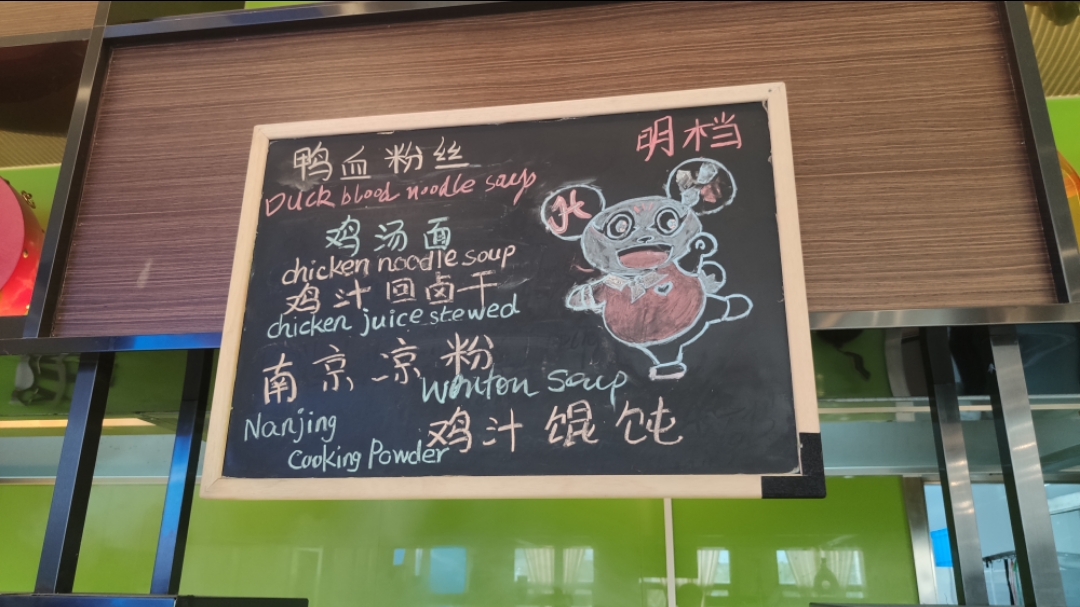 明档
鸭血粉丝
Duck blood noodle soup
鸡汤面
chicken noodle soup
鸡汁回卤干
chicken juice stewed
南京凉粉
Wonton Soup
Nanjing
鸡汁馄饨
Cooking Powder